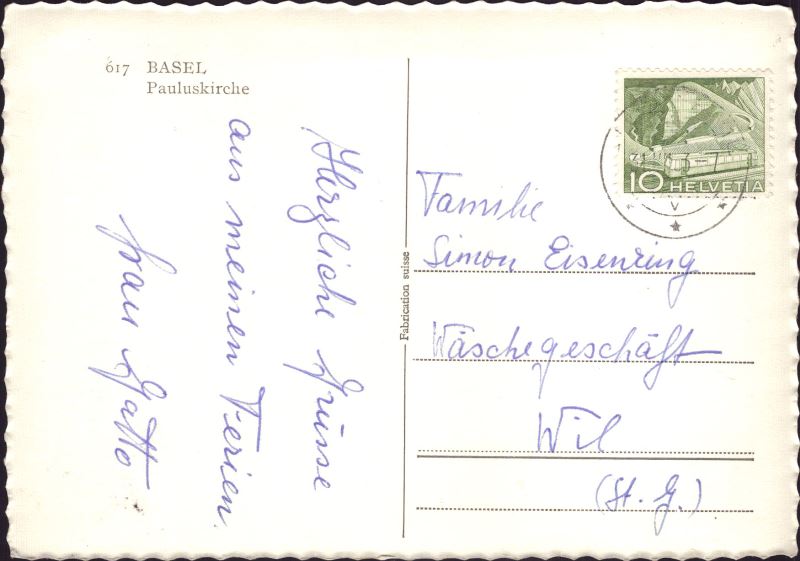 617 BASEL
Pauluskirche
Herzliche Grüsse
aus meinen Ferien.
Frau Gatto
Fabrication suisse
10 HELVETIA
V
Familie
Simon Eisenring
Wäschegeschäft
Wil
(St. G.)